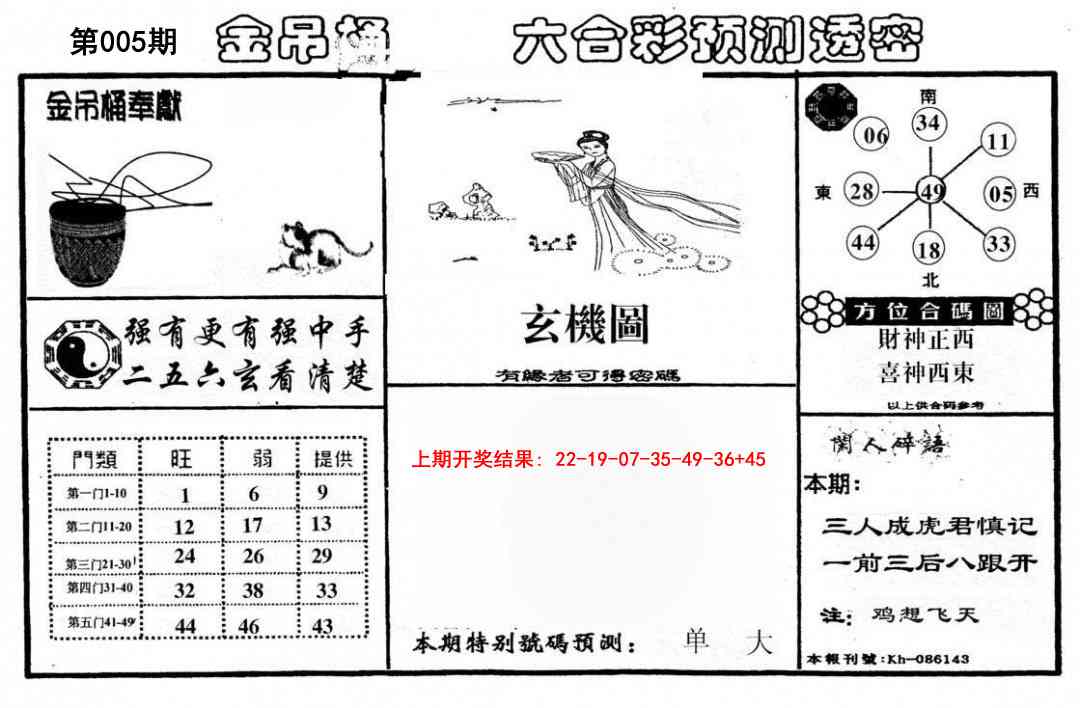 第005期
金吊桶 六合彩预测透密
金吊桶奉獻
强有更有强中手
二五六玄看清楚
門類 旺 弱 提供
第一门1-10 1 6 9
第二门11-20 12 17 13
第三门21-30 24 26 29
第四门31-40 32 38 33
第五门41-49 44 46 43
玄機圖
有緣者可得密碼
上期开奖结果: 22-19-07-35-49-36+45
本期特别號碼预测: 单 大
南
06 34 11
東 28 49 05 西
44 18 33
北
方位合碼圖
財神正西
喜神西東
以上供合码参考
閑人碎語
本期:
三人成虎君慎记
一前三后八跟开
注: 鸡想飞天
本報刊號:Kh-086143